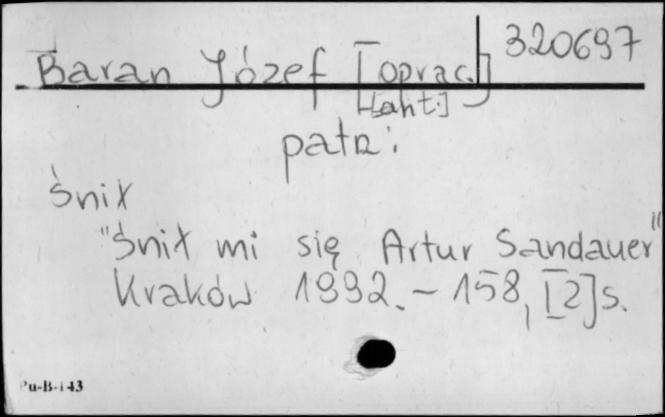 Baran Józef [oprac.] 320697
[aut.]
patrz:
Śnił
"Śnił mi się Artur Sandauer"
Kraków 1992. – 158, [2] s.
Pu-B-143